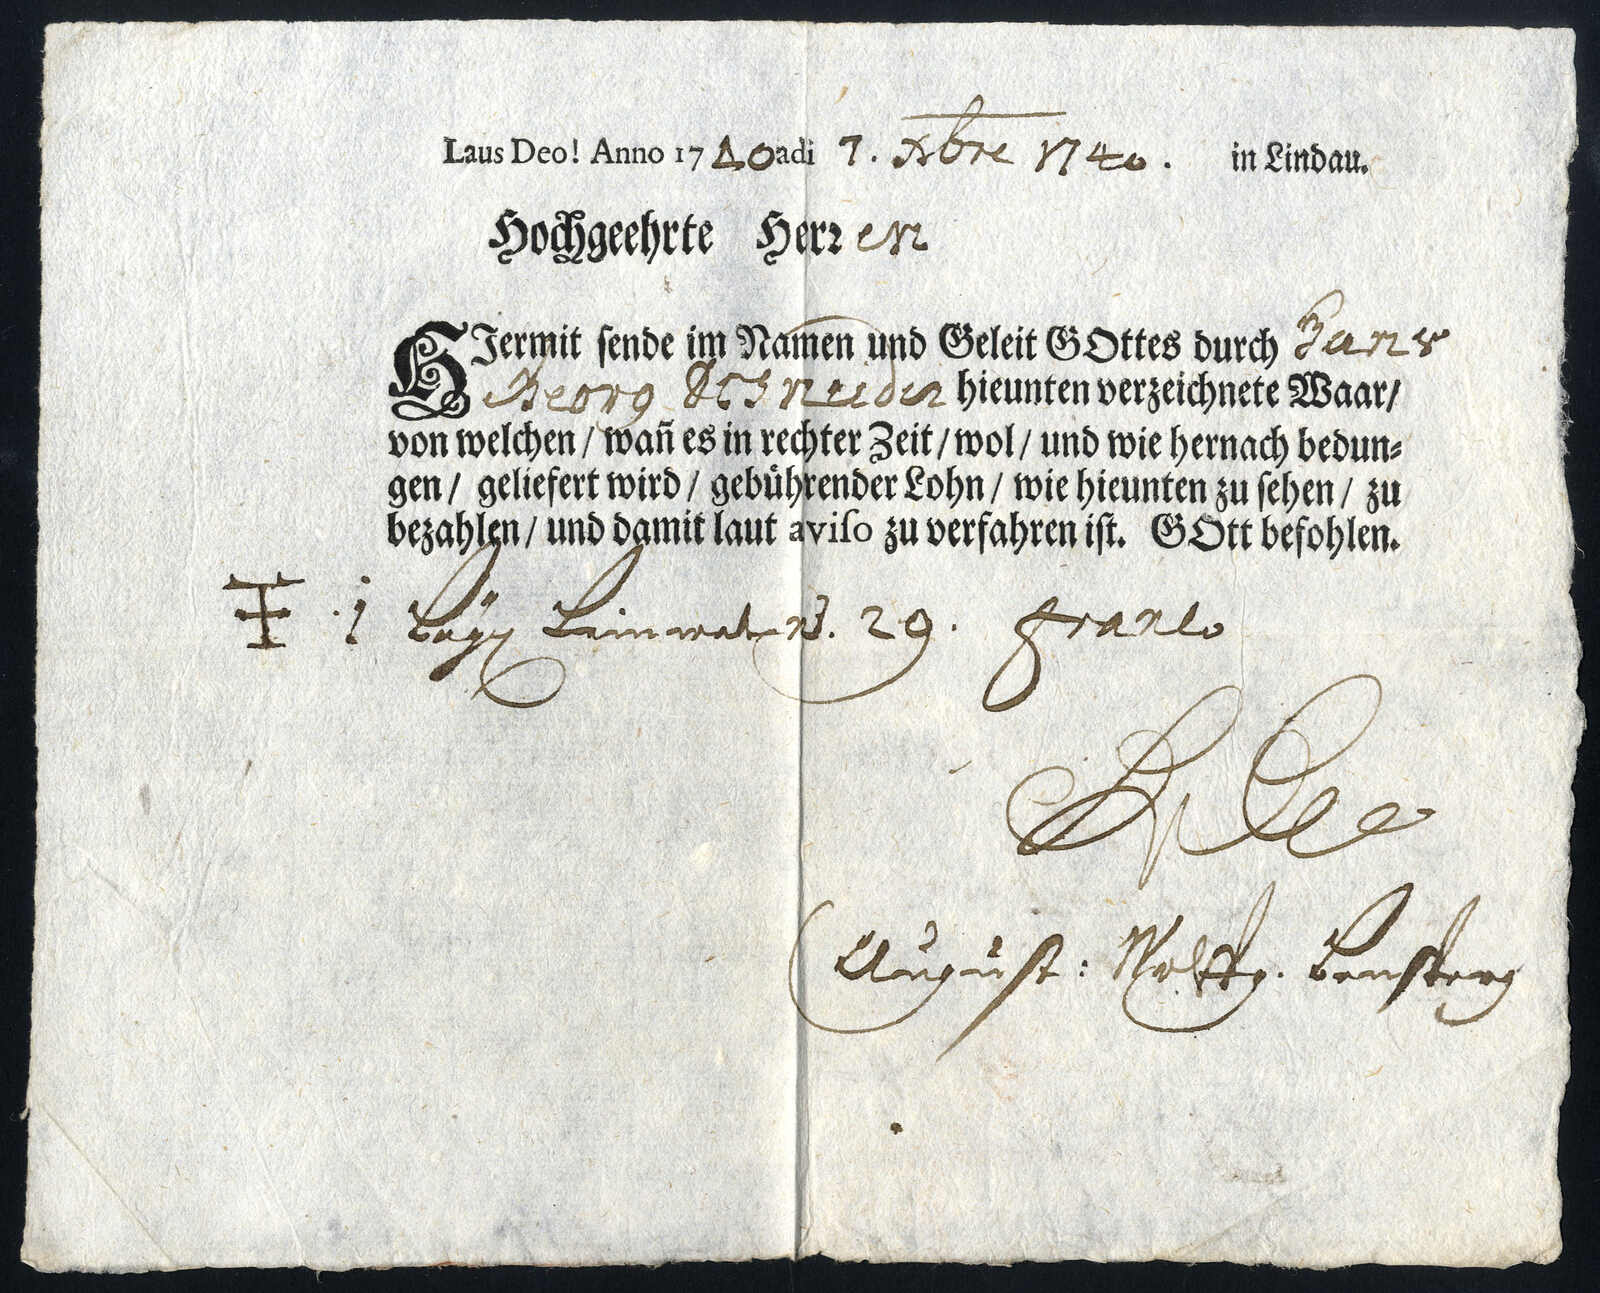 Laus Deo! Anno 1740 adi 7. Xbre 1740. in Lindau.
Hochgeehrte Herren
HJermit sende im Namen und Geleit GOttes durch Hans
Georg Schneider hieunten verzeichnete Waar/
von welchen / wañ es in rechter Zeit / wol / und wie hernach bedun-
gen / geliefert wird / gebührender Lohn / wie hieunten zu sehen / zu
bezahlen / und damit laut aviso zu verfahren ist. GOtt befohlen.
1 Leinwat 29. Franco
August: Wolffg.